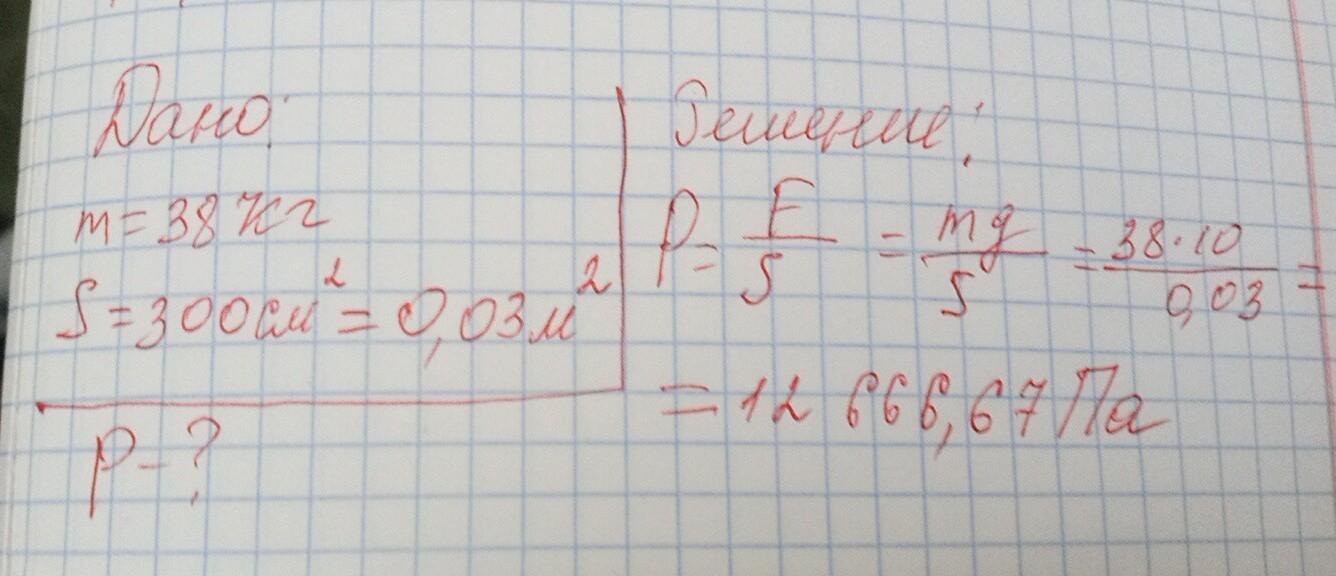 Дано:
m = 38 кг
S = 300 см² = 0,03 м²
P - ?
Решение:
P = F/S = mg/S = 38·10/0,03 =
= 12 666,67 Па